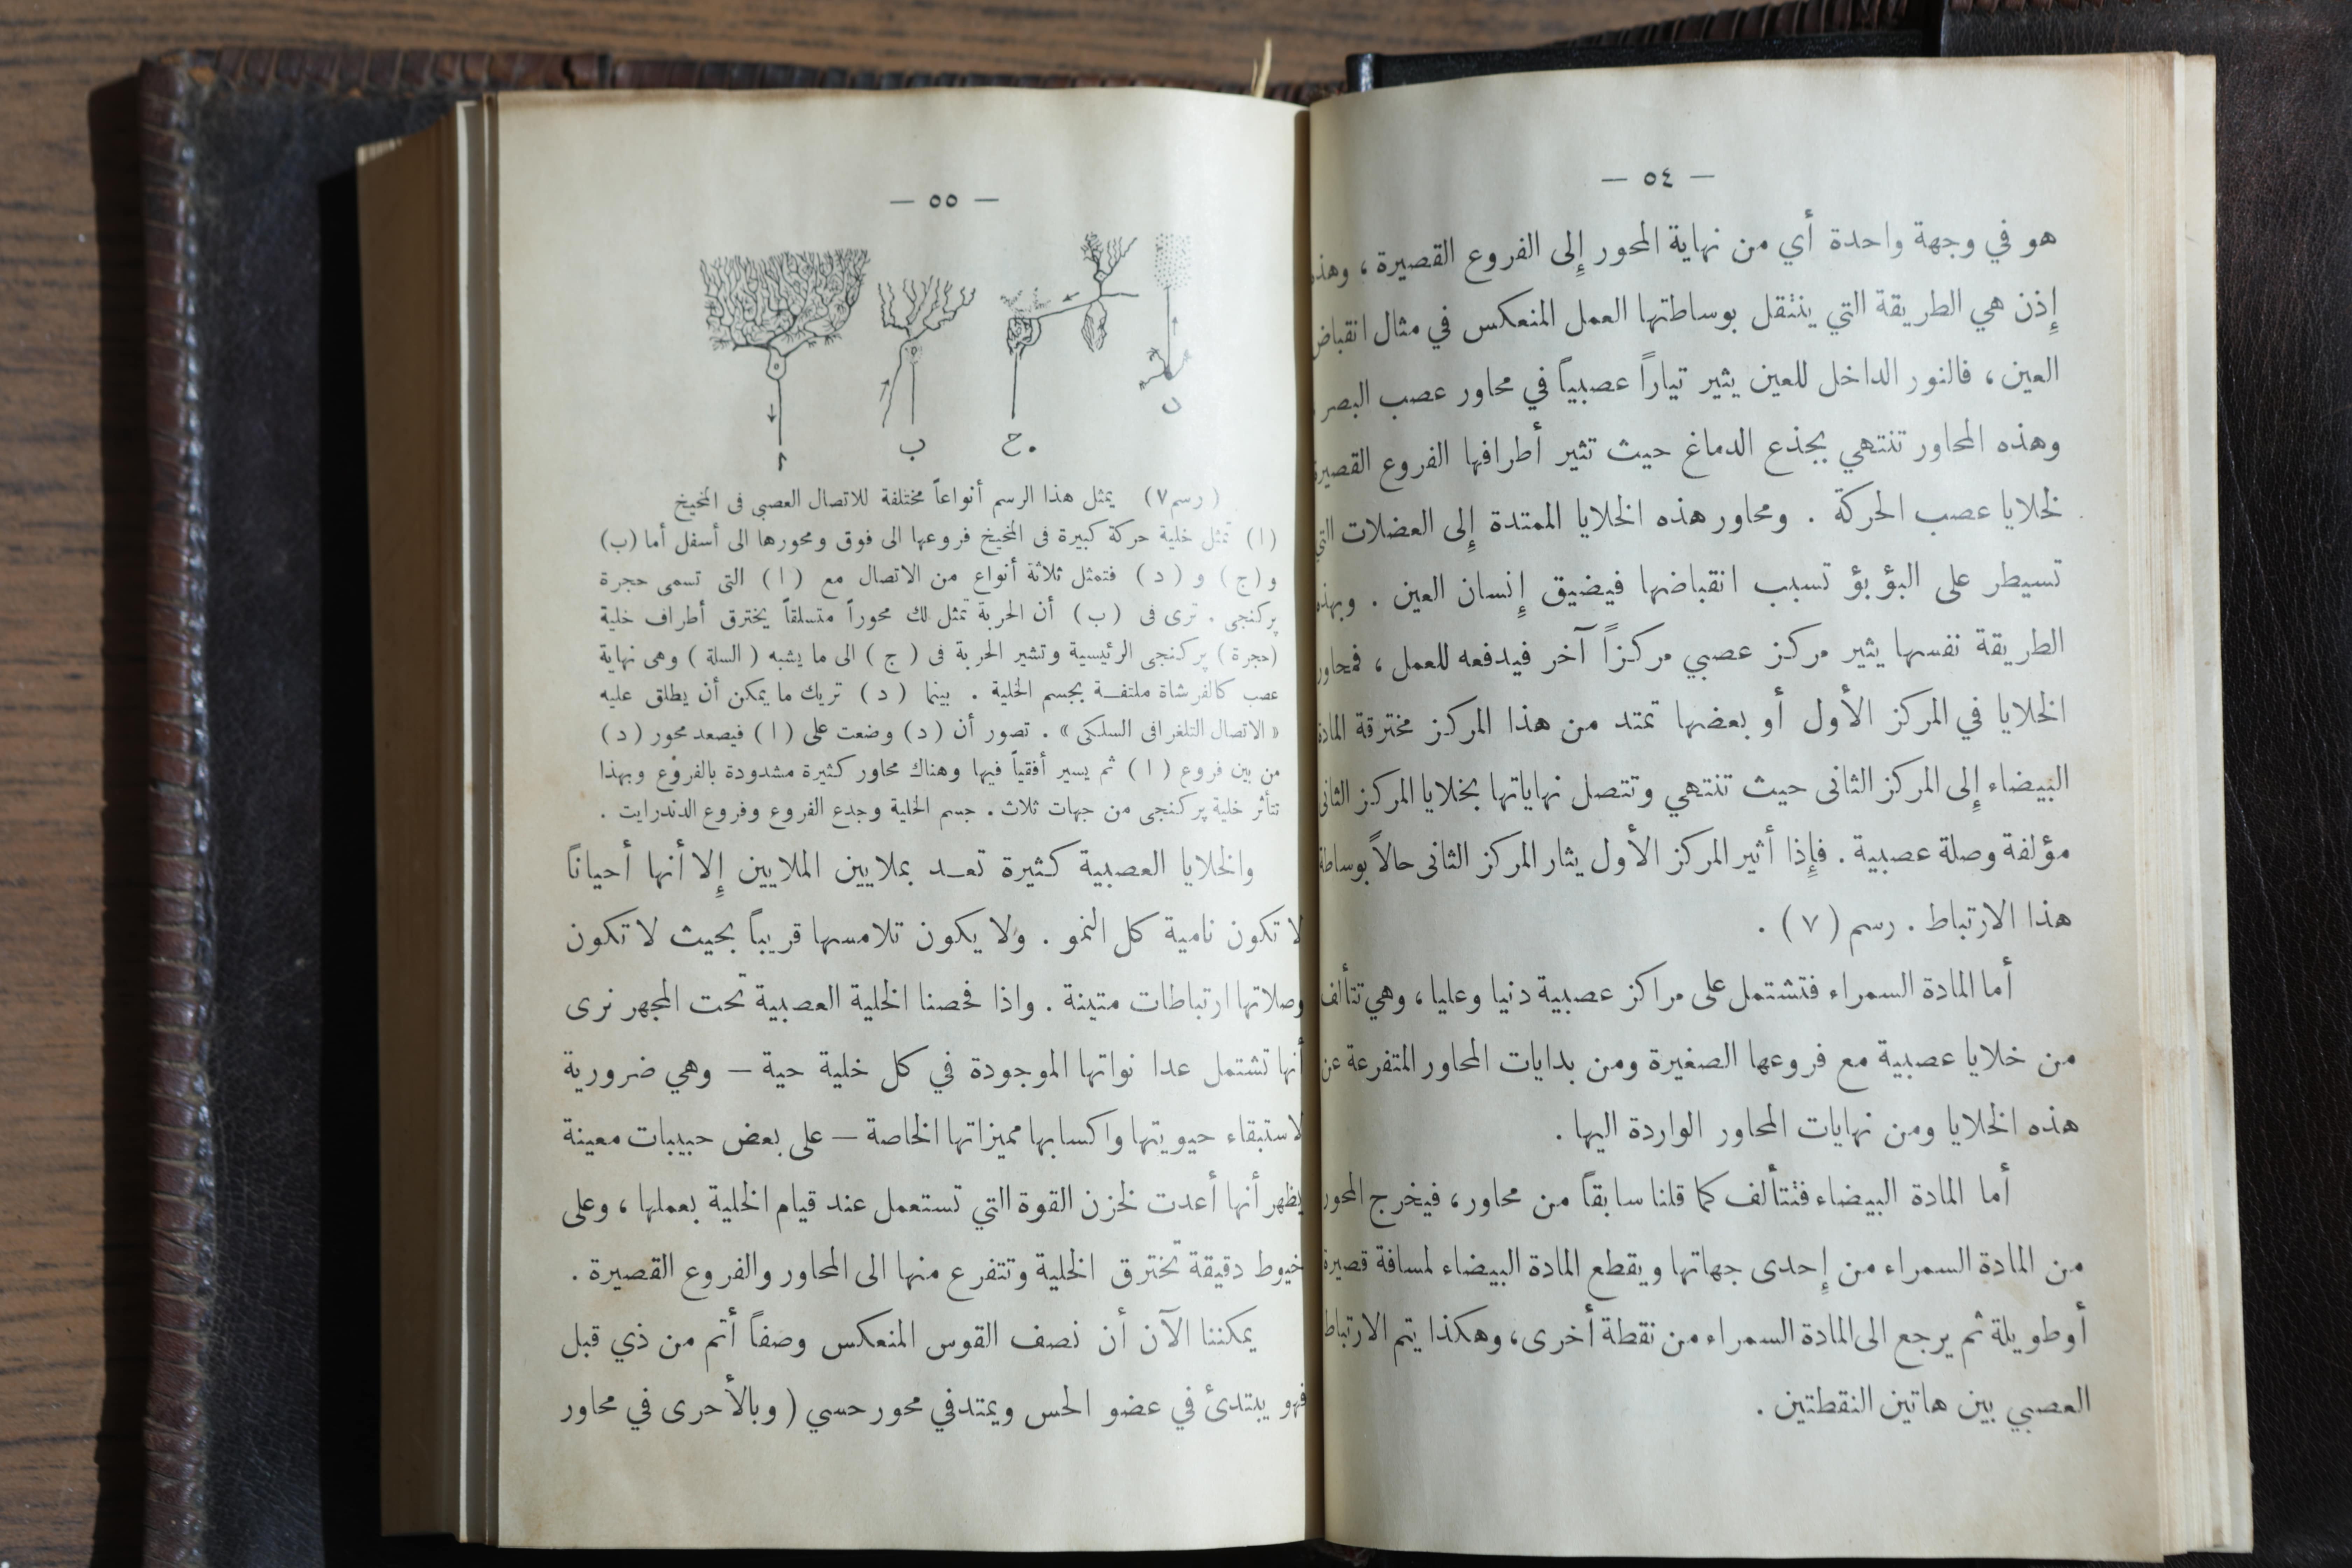 — ٥٤ —
هو في وجهة واحدة أي من نهاية المحور إلى الفروع القصيرة ، وهذه
إذن هي الطريقة التي ينتقل بوساطتها العمل المنعكس في مثال انقباض
العين ، فالنور الداخل للعين يثير تياراً عصبياً في محاور عصب البصر
وهذه المحاور تنتهي بجذع الدماغ حيث تثير أطرافها الفروع القصيرة
لخلايا عصب الحركة . ومحاور هذه الخلايا الممتدة إلى العضلات التي
تسيطر على البؤبؤ تسبب انقباضها فيضيق إنسان العين . وبهذه
الطريقة نفسها يثير مركز عصبي مركزاً آخر فيدفعه للعمل ، فمحاور
الخلايا في المركز الأول أو بعضها تمتد من هذا المركز مخترقة المادة
البيضاء إلى المركز الثانى حيث تنتهي وتتصل نهاياتها بخلايا المركز الثانى
مؤلفة وصلة عصبية . فإذا أثير المركز الأول يثار المركز الثانى حالاً بوساطة
هذا الارتباط . رسم ( ٧ ) .
أما المادة السمراء فتشتمل على مراكز عصبية دنيا وعليا ، وهي تتألف
من خلايا عصبية مع فروعها الصغيرة ومن بدايات المحاور المتفرعة عن
هذه الخلايا ومن نهايات المحاور الواردة اليها .
أما المادة البيضاء فتتألف كما قلنا سابقاً من محاور ، فيخرج المحور
من المادة السمراء من إحدى جهاتها ويقطع المادة البيضاء لمسافة قصيرة
أو طويلة ثم يرجع الى المادة السمراء من نقطة أخرى ، وهكذا يتم الارتباط
العصبي بين هاتين النقطتين .
— ٥٥ —
د
ج
ب
ا
( رسم ٧ ) يمثل هذا الرسم أنواعاً مختلفة للاتصال العصبى فى المخيخ
( ا ) تمثل خلية حركة كبيرة فى المخيخ فروعها الى فوق ومحورها الى أسفل أما ( ب )
و ( ج ) و ( د ) فتمثل ثلاثة أنواع من الاتصال مع ( ا ) التى تسمى حجرة
پركنجى . ترى فى ( ب ) أن الحربة تمثل لك محوراً متسلقاً يخترق أطراف خلية
( حجرة ) پركنجى الرئيسية وتشير الحربة فى ( ج ) الى ما يشبه ( السلة ) وهى نهاية
عصب كالفرشاة ملتفـة بجسم الخلية . بينما ( د ) تريك ما يمكن أن يطلق عليه
« الاتصال التلغرافى السلكى » . تصور أن ( د ) وضعت على ( ا ) فيصعد محور ( د )
من بين فروع ( ا ) ثم يسير أفقياً فيها وهناك محاور كثيرة مشدودة بالفروع وبهذا
تتأثر خلية پركنجى من جهات ثلاث . جسم الخلية وجدع الفروع وفروع الدندرايت .
والخلايا العصبية كثيرة تعـد بملايين الملايين إلا أنها أحياناً
لا تكون نامية كل النمو . ولا يكون تلامسها قريباً بحيث لا تكون
وصلاتها ارتباطات متينة . واذا فحصنا الخلية العصبية تحت المجهر نرى
أنها تشتمل عدا نواتها الموجودة في كل خلية حية — وهي ضرورية
لاستبقاء حيويتها واكسابها مميزاتها الخاصة — على بعض حبيبات معينة
يظهر أنها أعدت لخزن القوة التي تستعمل عند قيام الخلية بعملها ، وعلى
خيوط دقيقة تخترق الخلية وتتفرع منها الى المحاور والفروع القصيرة .
يمكننا الآن أن نصف القوس المنعكس وصفاً أتم من ذي قبل
فهو يبتدئ في عضو الحس ويمتد في محور حسي ( وبالأحرى في محاور